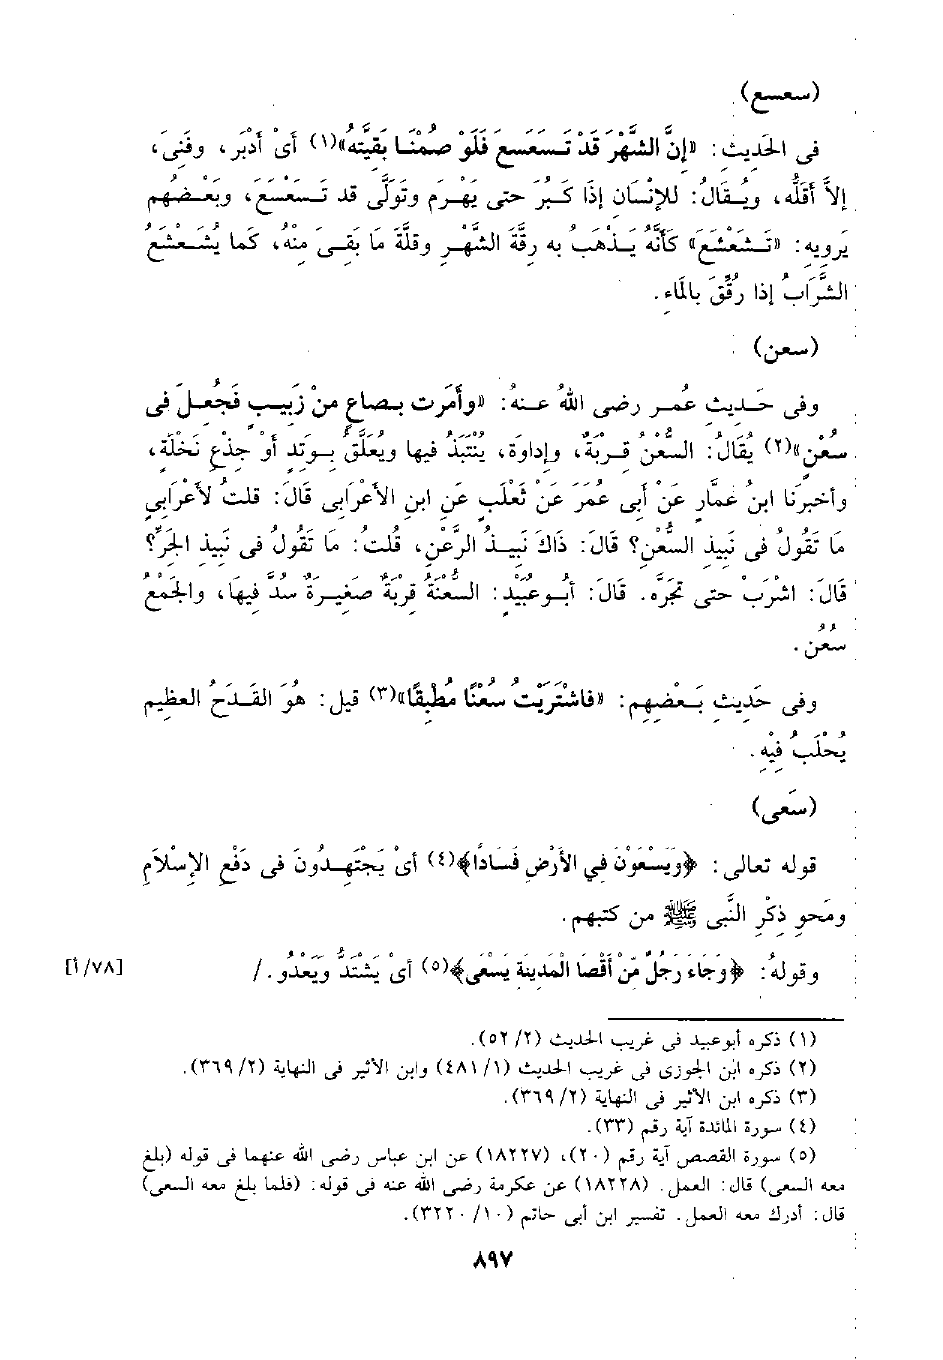 (سعسع)
فى الحَديثِ: «إنَّ الشَّهْرَ قَدْ تَسَعْسَعَ فَلَوْ صُمْنَا بَقيَّتَهُ»(١) أىْ أدْبَرَ، وفَنِىَ،
إلاَّ أقَلُّه، ويُقَالُ: للإنْسَانِ إذَا كَبُرَ حتى يَهْرَمَ وتَوَلَّى قد تَسَعْسَعَ، وبَعْضُهُم
يَرويهِ: «تَشَعْشَعَ» كَأنَّهُ يَذْهَبُ به رِقَّةَ الشَّهْرِ وقلَّةَ مَا بَقىَ مِنْهُ، كَما يُشَعْشَعُ
الشَّرَابُ إذا رُقِّقَ بالمَاءِ.
(سعن)
وفى حَديثِ عُمر رضى اللهُ عنهُ: «وأمَرتِ بِصاعٍ مِنْ زَبيبٍ فَجُعِلَ فى
سُعْنٍ»(٢) يُقَالُ: السُّعْنُ قِربَةٌ، وإداوَة، يُنْتَبَذُ فيها ويُعَلَّقُ بِوَتِدٍ أوْ جِذْعِ نَخْلَة،
وأخبرَنَا ابنُ عمَّارٍ عَنْ أبى عُمَرَ عَنْ ثَعْلَبٍ عَنِ ابنِ الأعْرَابى قَالَ: قلتُ لأعْرَابىٍ
مَا تَقُولُ فى نَبيذِ السُّعْنِ؟ قَالَ: ذَاكَ نَبيذُ الرَّعْنِ، قُلتُ: مَا تَقُولُ فى نَبيذِ الجَرِّ؟
قَالَ: اشْرَبْ حتى تَجَرَّه. قَالَ: أبُوعُبَيْدٍ: السُّعْنَةُ قربَةٌ صَغيرَةٌ سُدَّ فيهَا، والجَمْعُ
سُعُن.
وفى حَدِيثِ بَعْضِهِم: «فَاشْتَرَيْتُ سُعْنًا مُطْبِقًا»(٣) قيل: هُوَ القَدَحُ العظِيم
يُحْلَبُ فِيْهِ.
(سَعى)
قوله تعالى: ﴿وَيَسْعَوْنَ فِي الأَرْضِ فَسَادًا﴾(٤) أىْ يَجْتَهِدُونَ فى دَفْعِ الإسْلاَمِ
ومَحوِ ذِكْرِ النَّبى ﷺ من كتبهم.
وقولهُ: ﴿وَجَاءَ رَجُلٌ مِّنْ أَقْصَا الْمَدِينَةِ يَسْعَى﴾(٥) أىْ يَشْتَدُّ ويَعْدُو. /
[٧٨/أ]
(١) ذكره أبوعبيد فى غريب الحديث (٢/ ٥٢).
(٢) ذكره ابن الجوزى فى غريب الحديث (١/ ٤٨١) وابن الأثير فى النهاية (٢/ ٣٦٩).
(٣) ذكره ابن الأثير فى النهاية (٢/ ٣٦٩).
(٤) سورة المائدة آية رقم (٣٣).
(٥) سورة القصص آية رقم (٢٠)، (١٨٢٢٧) عن ابن عباس رضى الله عنهما فى قوله (بلغ
معه السعى) قال: العمل. (١٨٢٢٨) عن عكرمة رضى الله عنه فى قوله: (فلما بلغ معه السعى)
قال: أدرك معه العمل. تفسير ابن أبى حاتم (١٠/ ٣٢٢٠).
٨٩٧